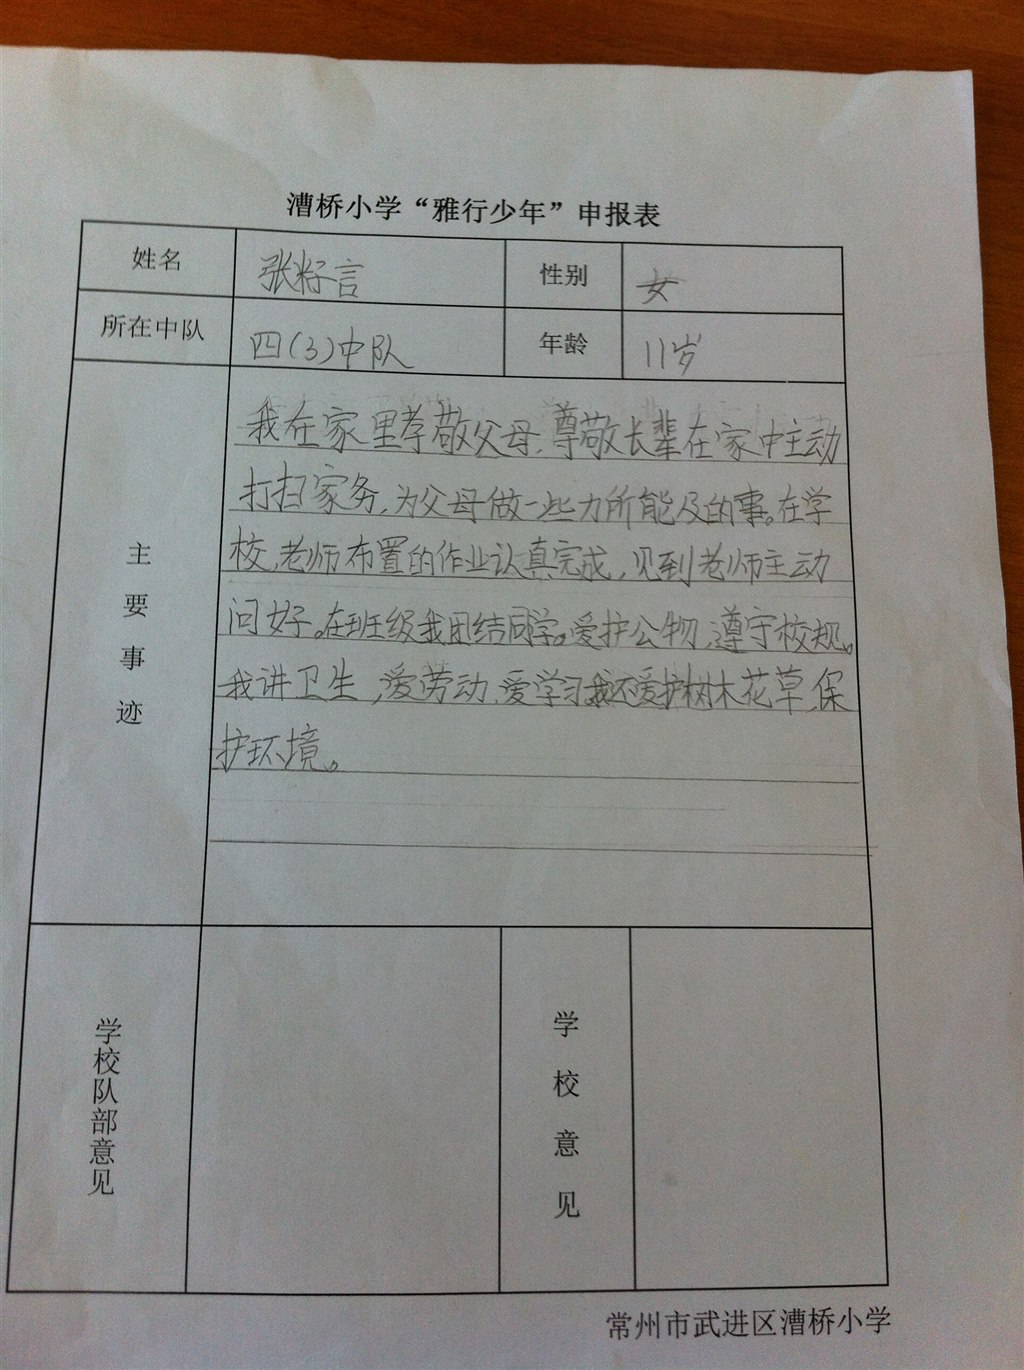 漕桥小学“雅行少年”申报表
姓名 张籽言 性别 女
所在中队 四(3)中队 年龄 11岁
主要事迹
我在家里孝敬父母、尊敬长辈在家中主动
打扫家务,为父母做一些力所能及的事。在学
校,老师布置的作业认真完成,见到老师主动
问好。在班级我团结同学。爱护公物、遵守校规。
我讲卫生,爱劳动、爱学习。我还爱护树木花草,保
护环境。
学校队部意见 学校意见
常州市武进区漕桥小学